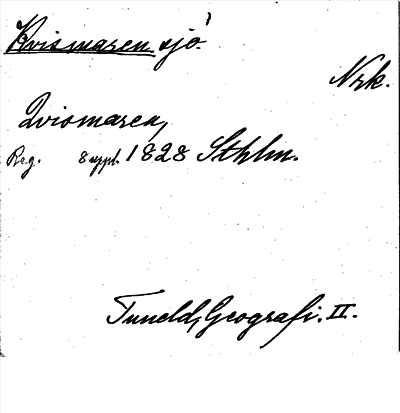 Kvismaren sjö.
Nrk.
Qvismaren,
Reg. 8 uppl. 1828 Sthlm.
Tuneld, Geografi. II.